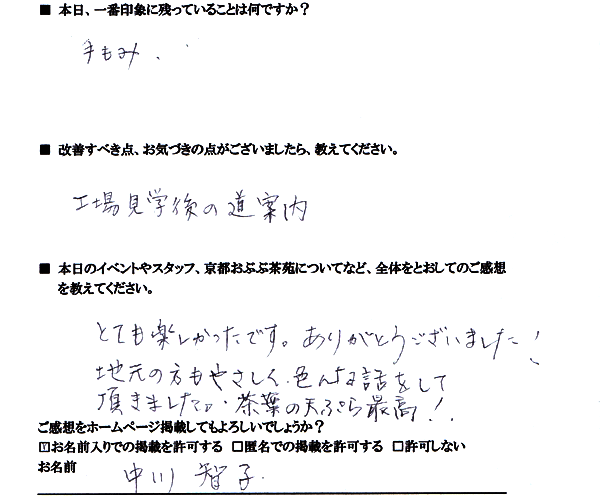 ■ 本日、一番印象に残っていることは何ですか?
手もみ.
■ 改善すべき点、お気づきの点がございましたら、教えてください。
工場見学後の道案内
■ 本日のイベントやスタッフ、京都おぶぶ茶苑についてなど、全体をとおしてのご感想
を教えてください。
とても楽しかったです。ありがとうございました!
地元の方もやさしく、色んな話をして
頂きました。茶葉の天ぷら最高!
ご感想をホームページ掲載してもよろしいでしょうか?
☑お名前入りでの掲載を許可する □匿名での掲載を許可する □許可しない
お名前 中川 智子